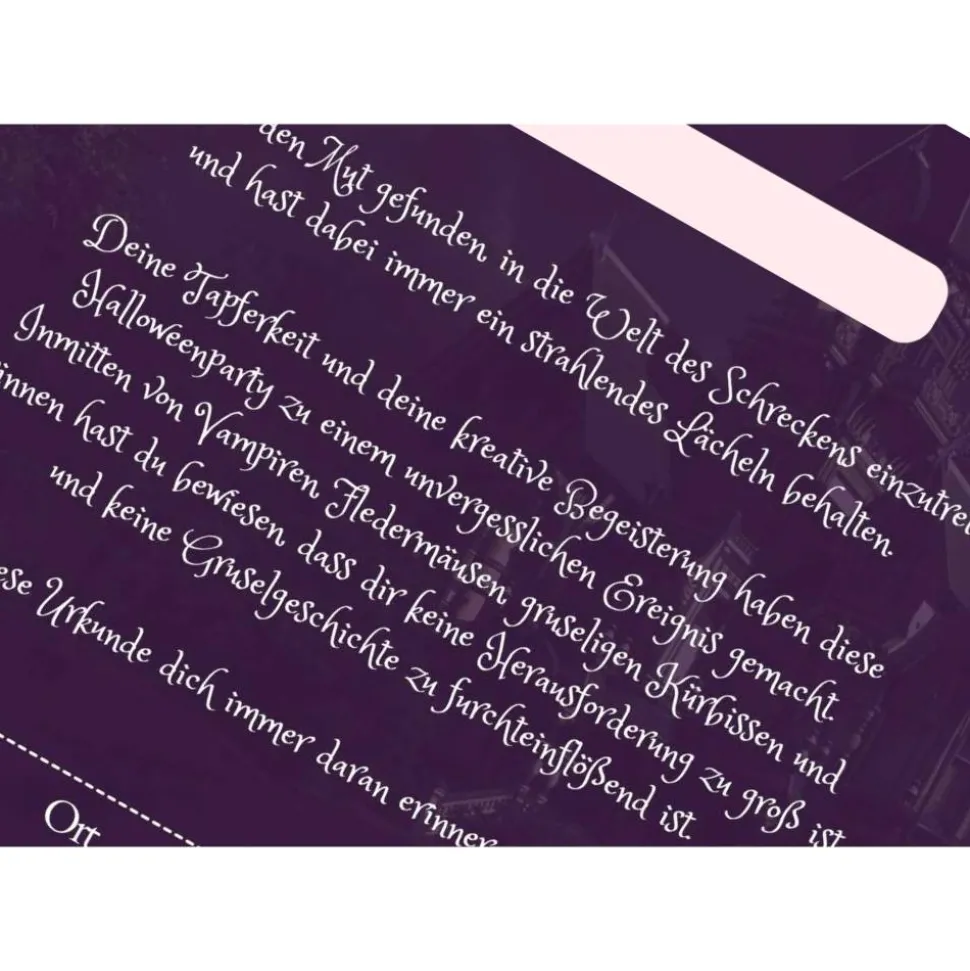 den Mut gefunden, in die Welt des Schreckens einzutre
und hast dabei immer ein strahlendes Lächeln behalten.
Deine Tapferkeit und deine kreative Begeisterung haben diese
Halloweenparty zu einem unvergesslichen Ereignis gemacht.
Inmitten von Vampiren, Fledermäusen, gruseligen Kürbissen und
innen hast du bewiesen, dass dir keine Herausforderung zu groß ist
und keine Gruselgeschichte zu furchteinflößend ist.
ese Urkunde dich immer daran erinner
Ort